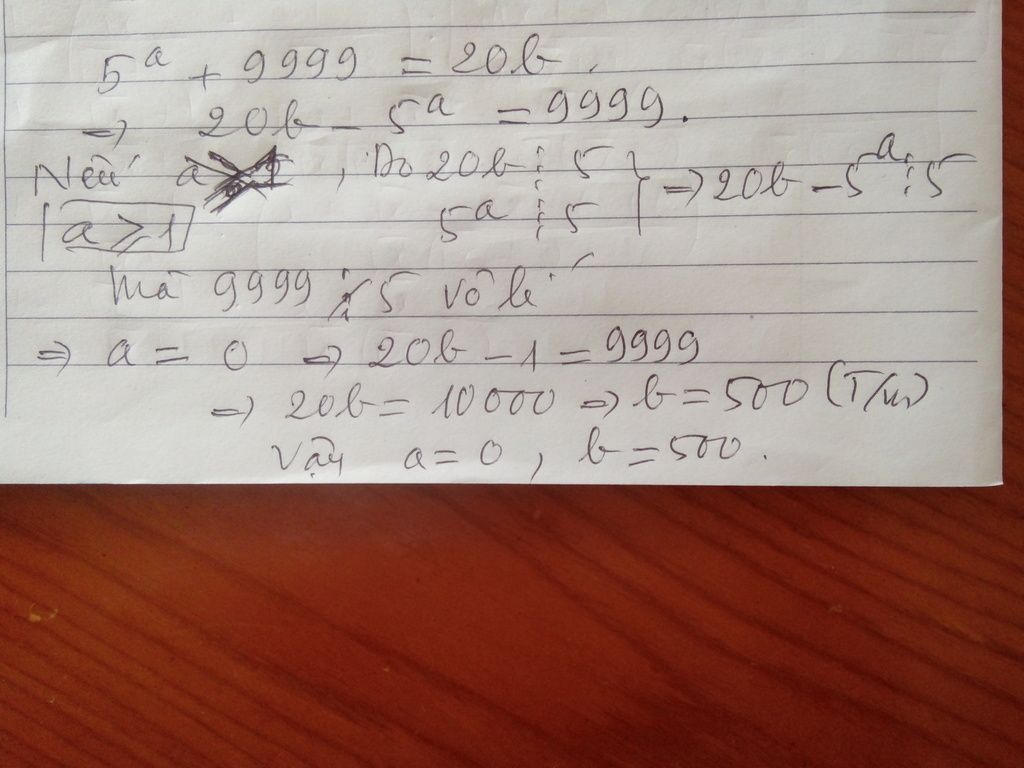 5^a + 9999 = 20b.
⇒ 20b - 5^a = 9999.
Nếu a , Do 20b ⋮ 5 } ⇒ 20b - 5^a ⋮ 5
a ≥ 1 5^a ⋮ 5
mà 9999 ⋮̸ 5 vô lí
⇒ a = 0 ⇒ 20b - 1 = 9999
⇒ 20b = 10000 ⇒ b = 500 (T/m)
Vậy a = 0, b = 500.